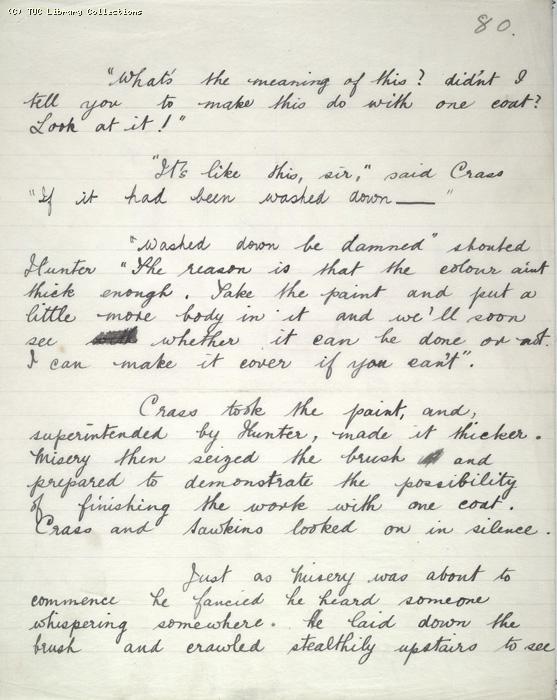 (C) TUC Library Collections
80.
"What's the meaning of this? didn't I
tell you to make this do with one coat?
Look at it!"
"It's like this, sir," said Crass
"If it had been washed down —"
"Washed down be damned" shouted
Hunter "The reason is that the colour aint
thick enough. Take the paint and put a
little more body in it and we'll soon
see whether it can be done or not.
I can make it cover if you can't".
Crass took the paint, and,
superintended by Hunter, made it thicker.
Misery then seized the brush and
prepared to demonstrate the possibility
of finishing the work with one coat.
Crass and Sawkins looked on in silence.
Just as Misery was about to
commence he fancied he heard someone
whispering somewhere. he laid down the
brush and crawled stealthily upstairs to see